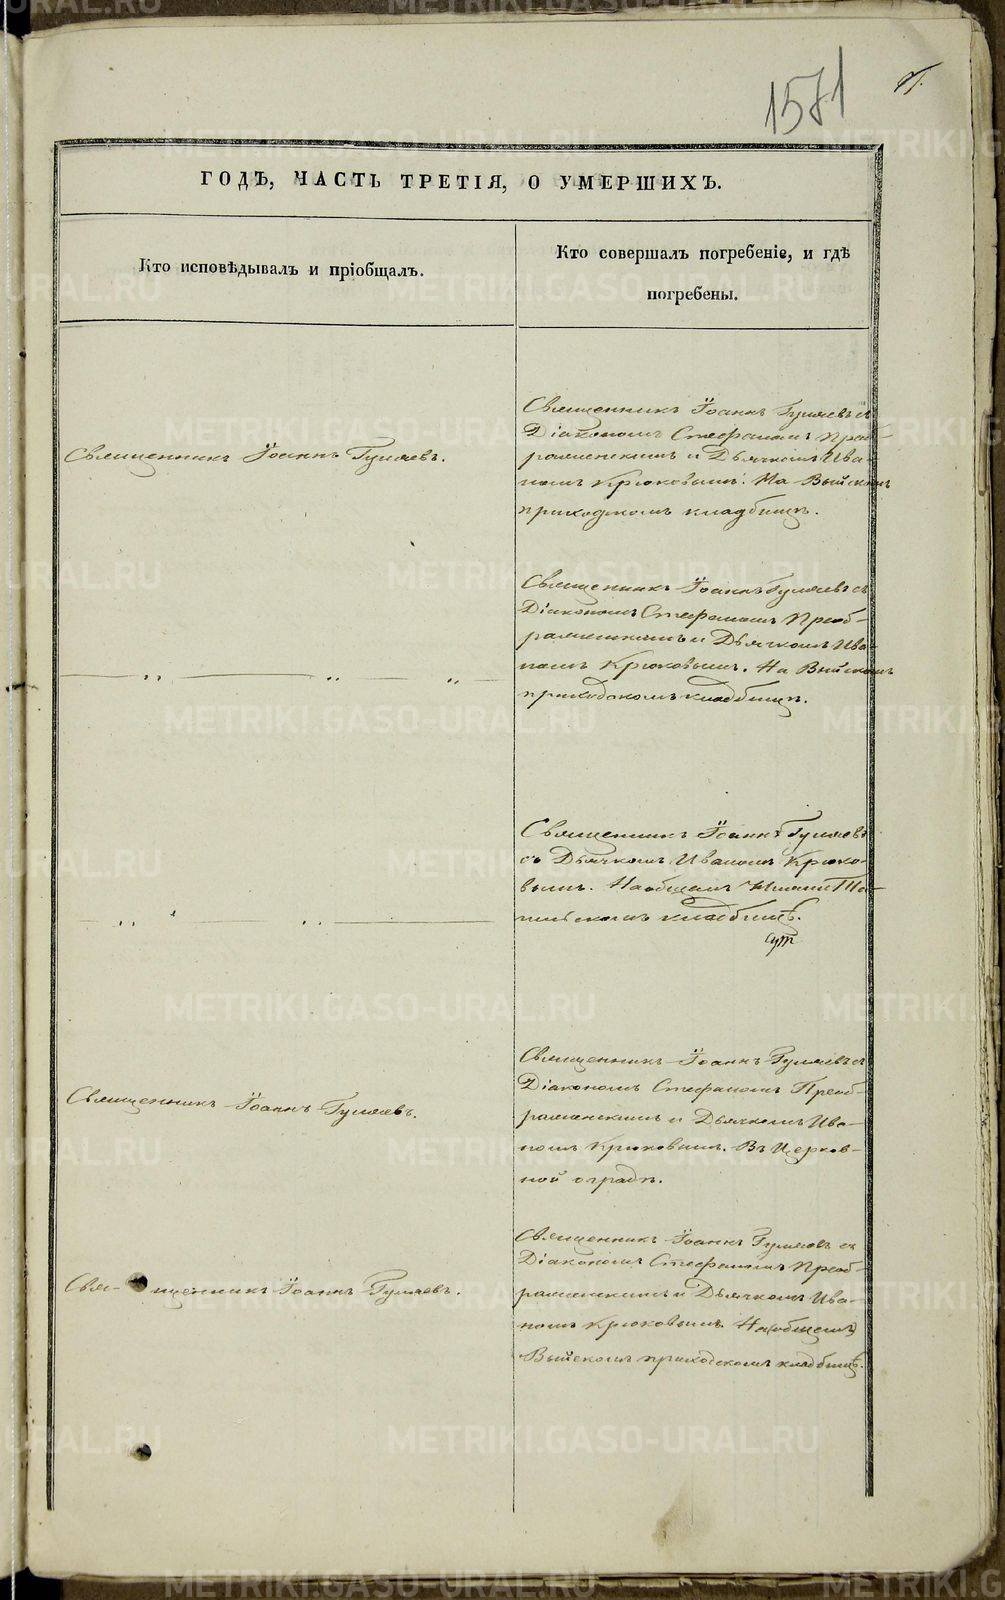 1571
ГОДЪ, ЧАСТЬ ТРЕТІЯ, О УМЕРШИХЪ.
Кто исповѣдывалъ и пріобщалъ.
Кто совершалъ погребеніе, и гдѣ
погребены.
Священникъ Іоаннъ Гуляевъ.
Священникъ Іоаннъ Гуляевъ съ
Діакономъ Стефаномъ Преоб-
раженскимъ и Дьячкомъ Ива-
номъ Крюковымъ. На Выйскомъ
приходскомъ кладбищѣ.
— „ — „ — „ —
Священникъ Іоаннъ Гуляевъ съ
Діакономъ Стефаномъ Преоб-
раженскимъ и Дьячкомъ Ива-
номъ Крюковымъ. На Выйскомъ
приходскомъ кладбищѣ.
— „ — „ —
Священникъ Іоаннъ Гуляевъ
съ Дьячкомъ Иваномъ Крюко-
вымъ. На общемъ Нижне Та-
гильскомъ кладбищѣ.
Священникъ Іоаннъ Гуляевъ.
Священникъ Іоаннъ Гуляевъ съ
Діакономъ Стефаномъ Преоб-
раженскимъ и Дьячкомъ Ива-
номъ Крюковымъ. Въ Церков-
ной оградѣ.
Свя- щенникъ Іоаннъ Гуляевъ.
Священникъ Іоаннъ Гуляевъ съ
Діакономъ Стефаномъ Преоб-
раженскимъ и Дьячкомъ Ива-
номъ Крюковымъ. На общемъ
Выйскомъ приходскомъ кладбищѣ.
METRIKI.GASO-URAL.RU